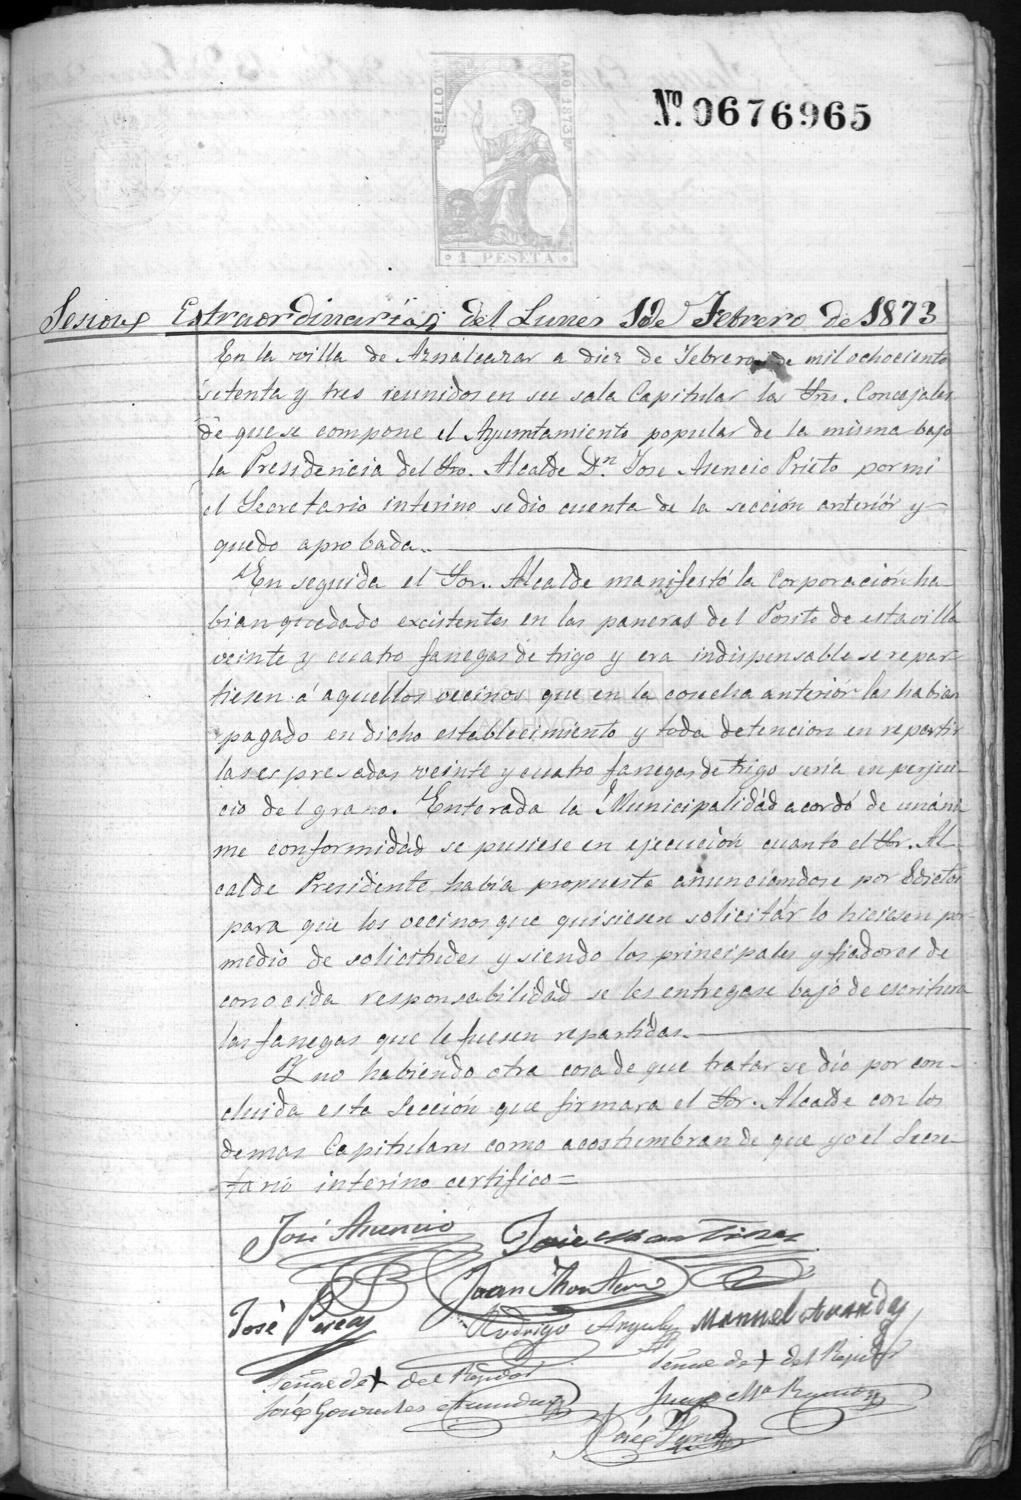 SELLO 11º
AÑO 1873
1 PESETA
Nº. 0676965
Sesiones Extraordinarias del Lunes 10 de Febrero de 1873
En la villa de Aznalcazar a diez de Febrero de mil ochociento
setenta y tres reunidos en su sala Capitular los Sres. Concejales
de que se compone el Ayuntamiento popular de la misma bajo
la Presidencia del Sro. Alcalde Dn. Jose Asencio Prieto por mi
el Secretario interino se dio cuenta de la sección anteriór y
quedo aprobada..
En seguida el Sor. Alcalde manifestó la Corporación ha
bian quedado excistentes en las paneras del Posito de esta villa
veinte y cuatro fanegas de trigo y era indispensable se repar-
tiesen á aquellos vecinos que en la cosecha anteriór las habian
pagado en dicho establecimiento y toda detencion en repartir
las espresadas veinte y cuatro fanegas de trigo seria en perjui-
cio del grano. Enterada la Municipalidád acordó de unáni
me conformidád se pusiese en ejecución cuanto el Sr. Al
calde Presidente habia propuesto anunciandose por Edictos
para que los vecinos que quisiesen solicitár lo hiciesen por
medio de solicitudes y siendo los principales y fiadores de
conocida responsabilidád se les entregase bajo de escritura
las fanegas que le fuesen repartidas.
Y no habiendo otra cosa de que tratar se dio por con-
cluida esta Sección que firmara el Sor. Alcalde con los
demas Capitulares como acostumbran de que yo el Secre-
tario interino certifico=
José Asencio José Martinez
José Perea Juan
Rodrigo Manuel
Señal de + del Rejidor
Señal de + del Rejidor
José Gonzales
Juan Ma Ramon
José